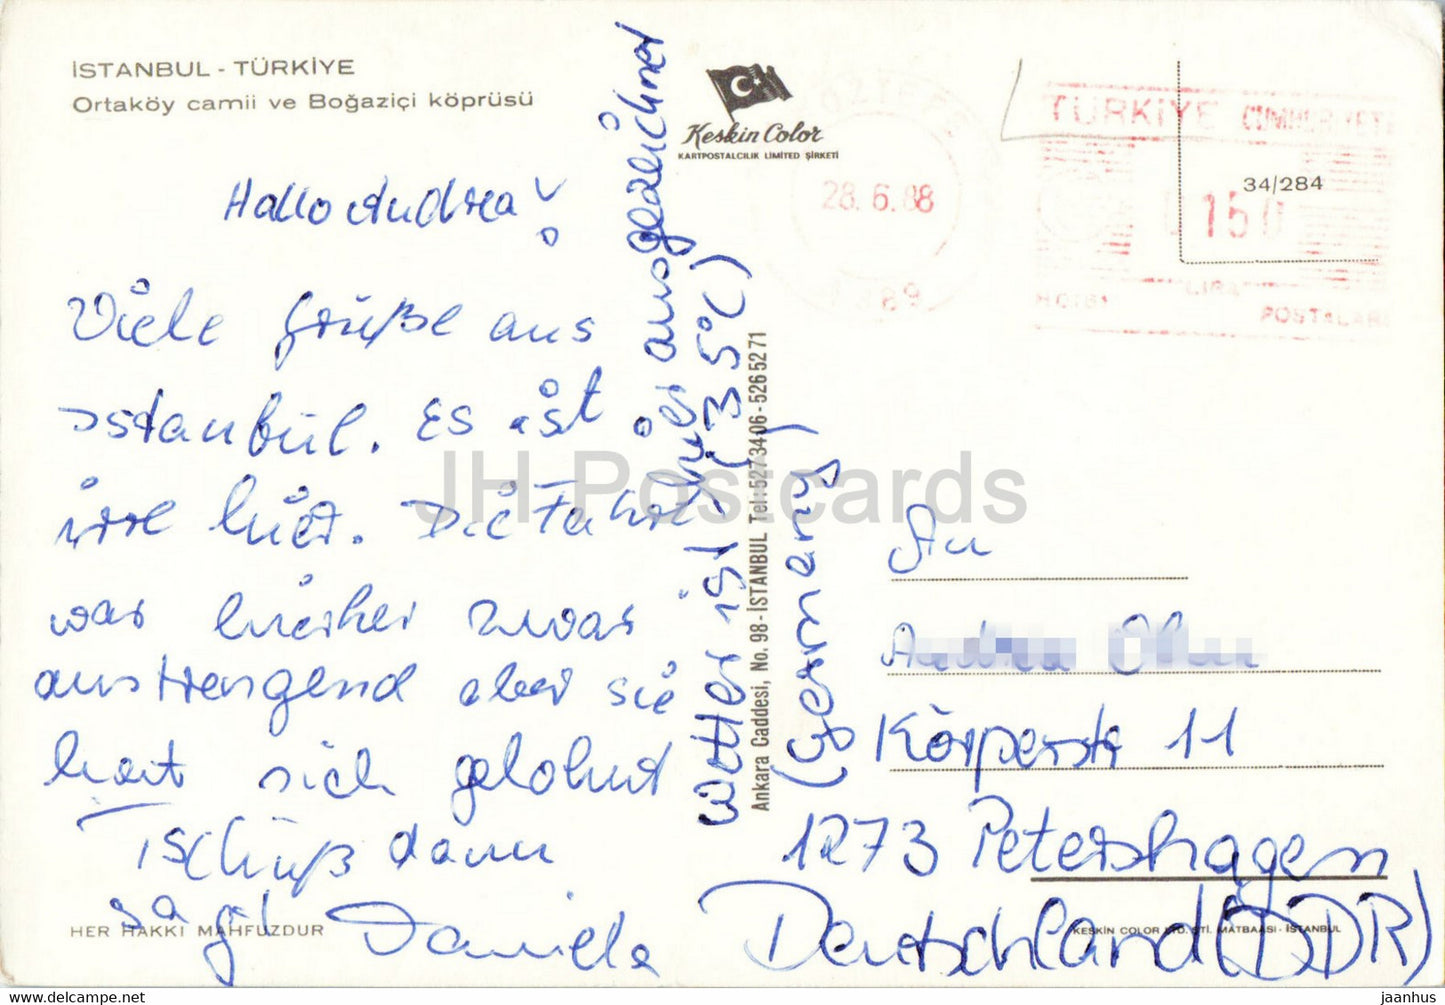 İSTANBUL - TÜRKİYE
Ortaköy camii ve Boğaziçi köprüsü
Hallo Andrea!
Viele Grüße aus
Istanbul. Es ist
irre hier. Die Fahrt
war bisher zwar
anstrengend aber sie
hat sich gelohnt
Tschüß dann
sagt Daniela
Wetter ist hier ausgezeichnet
(35°C)
Keskin Color
KARTPOSTALCILIK LIMITED ŞİRKETİ
Ankara Caddesi, No. 98 - İSTANBUL Tel: 527 34 06 - 526 52 71
28.6.88
TÜRKİYE CUMHURİYETİ
34/284
150
LİRA
POSTALARI
An
Andrea
Körperstr 11
1273 Petershagen
Deutschland (DDR)
(Germany)
HER HAKKI MAHFUZDUR
KESKİN COLOR LTD. ŞTİ. MATBAASI - İSTANBUL
JH-Postcards
www.delcampe.net
jaanhus